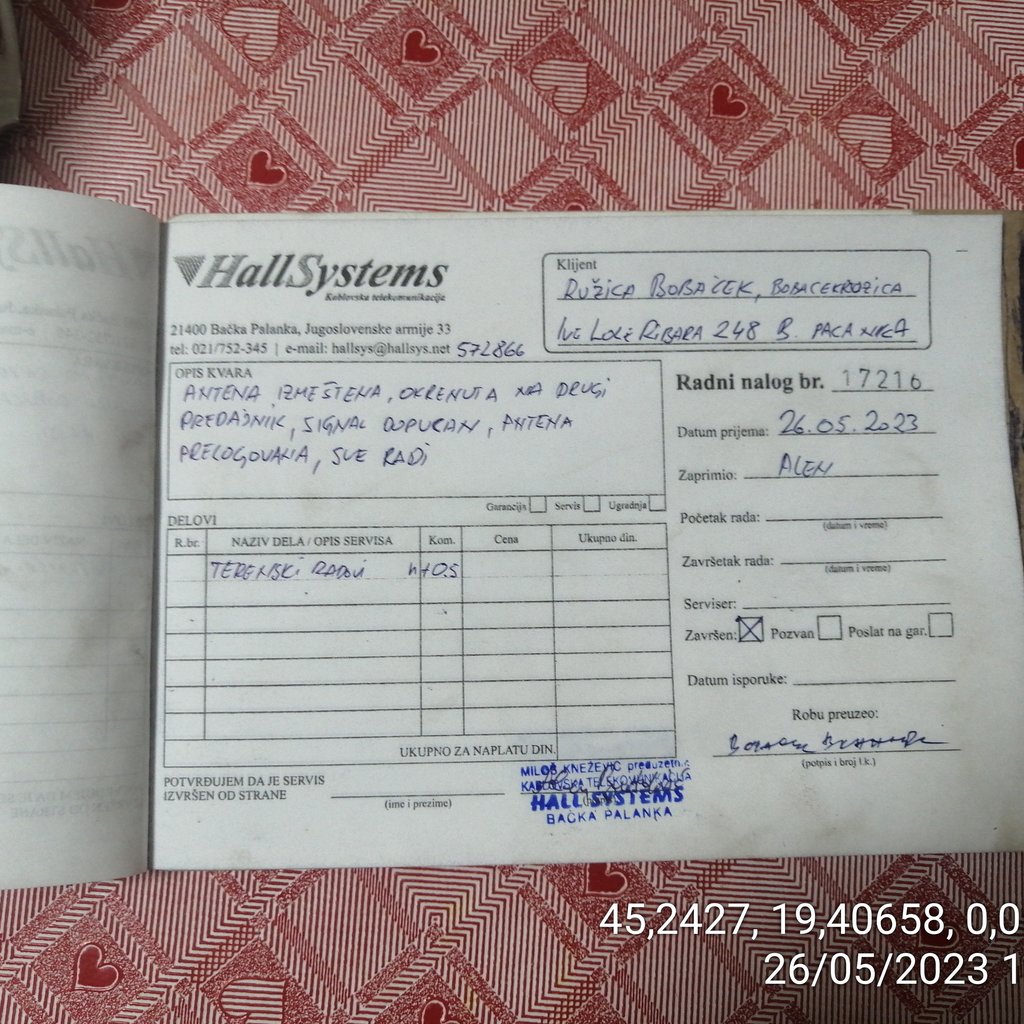 HallSystems
Kablovska telekomunikacija
21400 Bačka Palanka, Jugoslovenske armije 33
tel: 021/752-345 | e-mail: hallsys@hallsys.net 572866
Klijent
RUŽICA BOBAČEK, BOBACEKRUZICA
IVE LOLE RIBARA 248 B. PALANKA
OPIS KVARA
ANTENA IZMEŠTENA, OKRENUTA NA DRUGI
PREDAJNIK, SIGNAL DOPUCAN, ANTENA
PRELOGOVANA, SVE RADI
Garancija Servis Ugradnja
Radni nalog br. 17216
Datum prijema: 26.05.2023
Zaprimio: ALEN
Početak rada:
(datum i vreme)
Završetak rada:
(datum i vreme)
Serviser:
Završen: Pozvan Poslat na gar.
Datum isporuke:
Robu preuzeo:
(potpis i broj l.k.)
DELOVI
R.br. NAZIV DELA / OPIS SERVISA Kom. Cena Ukupno din.
TERENSKI RADOVI h+0.5
UKUPNO ZA NAPLATU DIN.
POTVRĐUJEM DA JE SERVIS
IZVRŠEN OD STRANE
(ime i prezime)
MILOŠ KNEŽEVIĆ preduzetnik
KABLOVSKA TELEKOMUNIKACIJA
HALL SYSTEMS
BAČKA PALANKA
45,2427, 19,40658, 0,0
26/05/2023 1